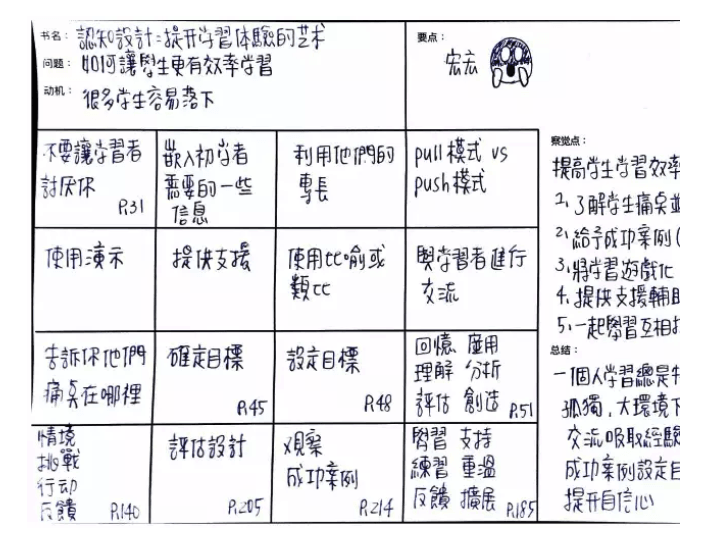 书名：認知設計：提升学習体驗的艺术
问题：如何讓學生更有效率学習
动机：很多学生容易落下
要点：
宏云
不要讓学習者
討厌你
P.31
嵌入初学者
需要的一些
信息
利用他們的
專長
pull模式 vs
push模式
使用演示
提供支援
使用比喻或
類比
與学習者進行
交流
告訴你他們
痛奌在哪裡
確定目標
P.45
設定目標
P.48
回憶 應用
理解 分析
評估 創造 P.51
情境
挑戰
行动
反饋 P.140
評估設計
P.205
观察
成功案例
P.214
學習 支持
練習 重溫
反饋 擴展 P.185
察觉点：
提高学生学習效率
1、了解学生痛奌並
2、給予成功案例(
3、將学習遊戲化
4、提供支援輔助
5、一起學習互相
总结：
一個人学習總是
孤獨，大環境下
交流吸取經驗
成功案例設定目
提升自信心